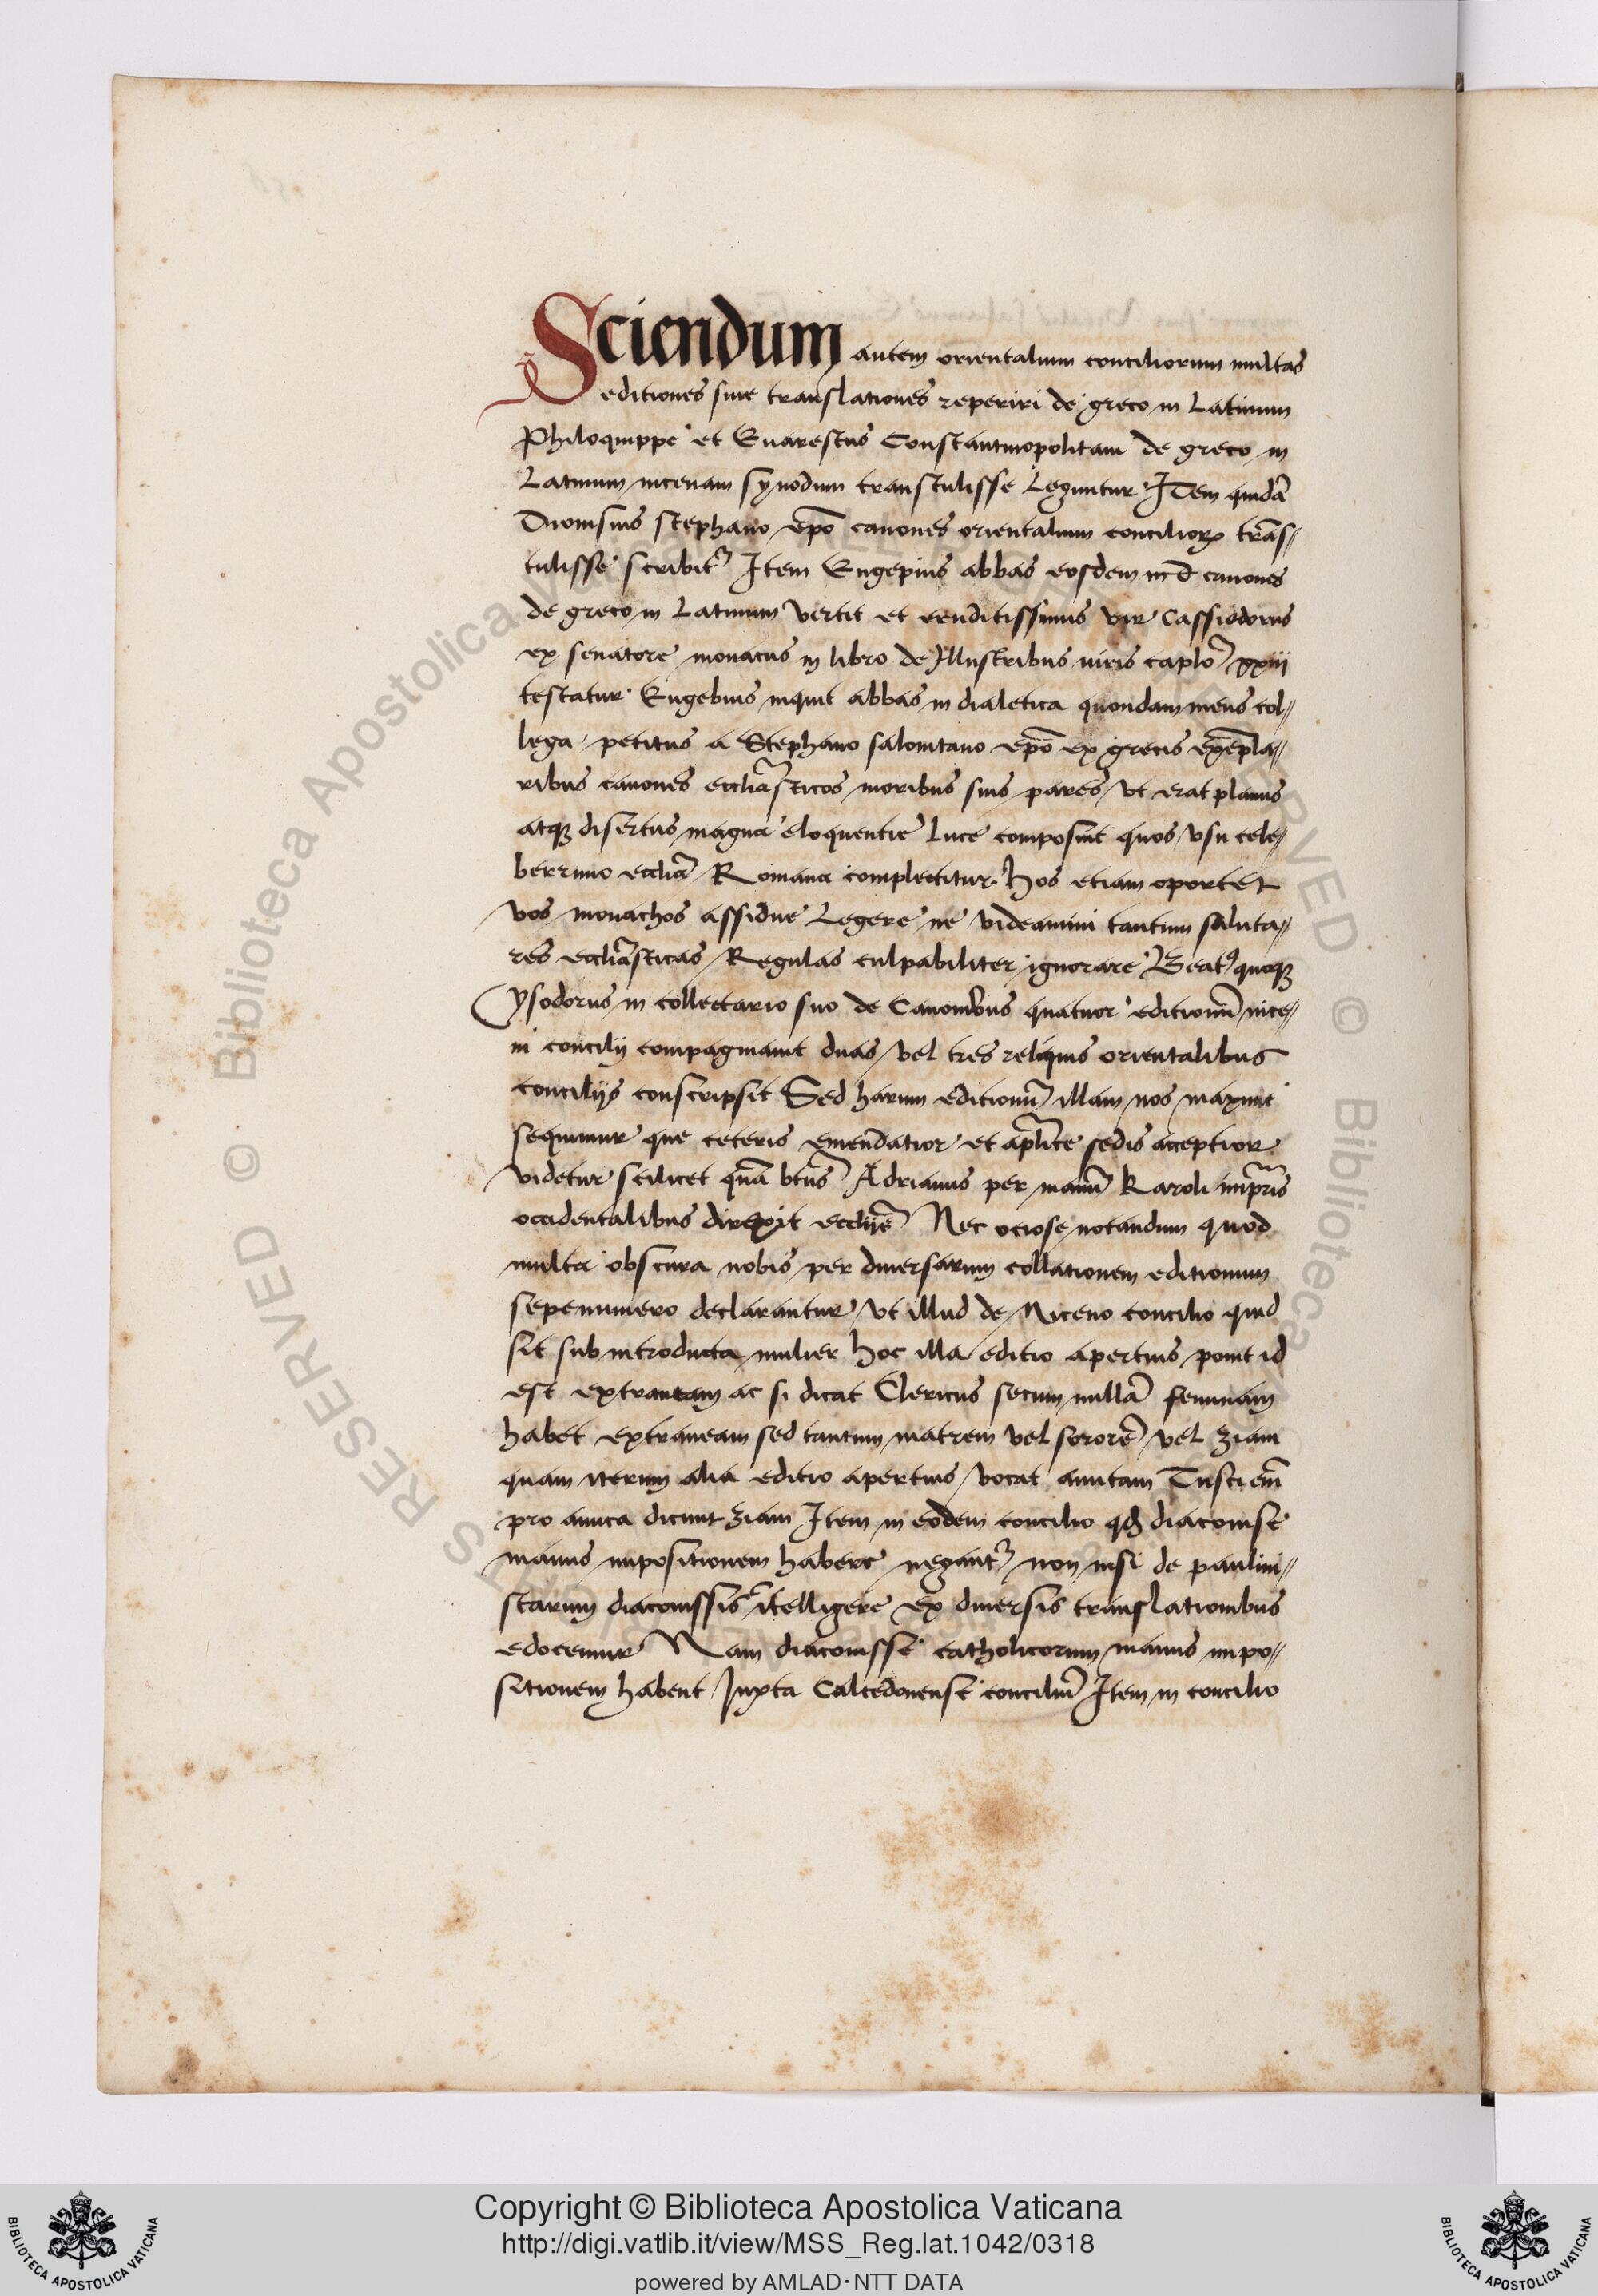 Sciendum autem orientalium conciliorum multas
editiones siue translationes reperiri de greco in Latinum
Philoquippe et Euarestus Constantinopolitani de greco in
Latinum nicenam synodum transtulisse Leguntur Item quidā
Dionisius stephano ep̄o canones orientalium concilioꝝ trās//
tulisse scribit᷒ Item Eugepius abbas eosdem canones
de greco in Latinum vertit et eruditissimus vir Cassiodorus
ex senatore monacus in libro de Illustribus uiris caplo͞ xxiii
testatur Eugebius inquit abbas in dialetica quondam meus col//
lega petitus a Stephano salonitano ep̄o ex grecis exēpla//
ribus canones eccliāsticos moribus suis pares vt erat planus
atqꝫ disertus magna eloquentie Luce composuit quos vsu cele//
berrimo eccliā Romana complectitur. hos etiam oportet
vos monachos assidue Legere ne videamini tantum saluta//
res eccliāsticas Regulas culpabiliter ignorare Beatꝰ quoqꝫ
ysodorus in collectario suo de Canonibus quatuor editionū nice//
ni concilij compaginauit duas vel tres reliquis orientalibus
concilijs conscripsit Sed harum editionū illam nos maxime
sequimur que ceteris emendatior et aplīce sedis acceptior
videtur scilicet quā btūs Adrianus per manū Karoli impr̄is
occidentalibus direxit ecclijē Nec ociose notandum quod
multa obscura nobis per diuersarum collationem editionum
sepenumero declarantur vt illud de Niceno concilio quid
sit sub introducta mulier hoc illa editio apertius ponit id
est extraneam ac si dicat Clericus secum nullā feminam
habet extraneam sed tantum matrem vel sororē vel ziam
quam iterum alia editio apertius vocat amitam Tusci em̄
pro amica dicunt ziam Item in eodem concilio qđ diaconisse
manus impositionem habere negant᷒ non nisi de paulini//
starum diaconissis ītelligere ex diuersis translationibus
edocemur Nam diaconisse catholicorum manus impo//
sitionem habent Juxta Calcedonense conciliū Item in concilio
Copyright © Biblioteca Apostolica Vaticana
http://digi.vatlib.it/view/MSS_Reg.lat.1042/0318
powered by AMLAD·NTT DATA
BIBLIOTECA APOSTOLICA VATICANA
BIBLIOTECA APOSTOLICA VATICANA